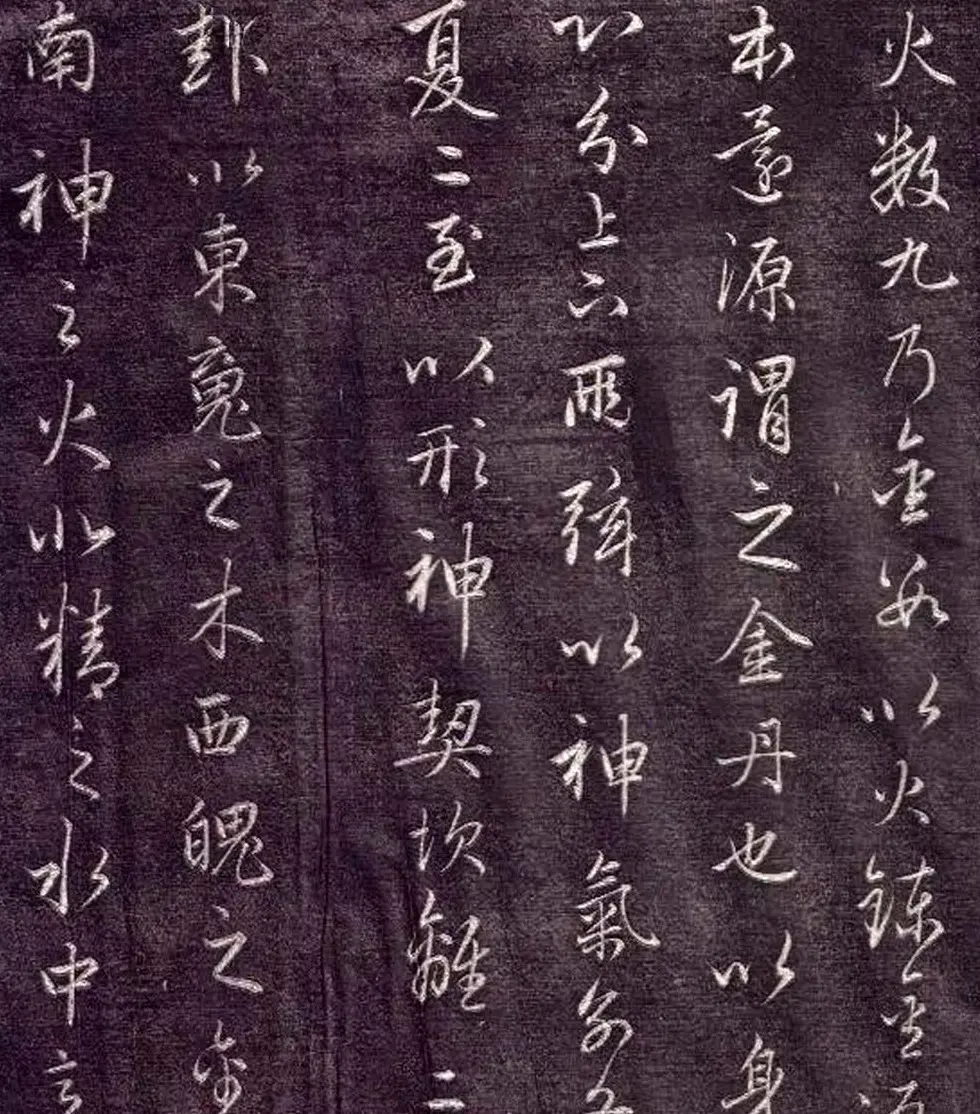 火数九乃金数以火鍊金
本還源謂之金丹也以身
心分上下兩弦以神氣別冬
夏二至以形神契坎離二
卦以東魂之木西魄之金
南神之火北精之水中意